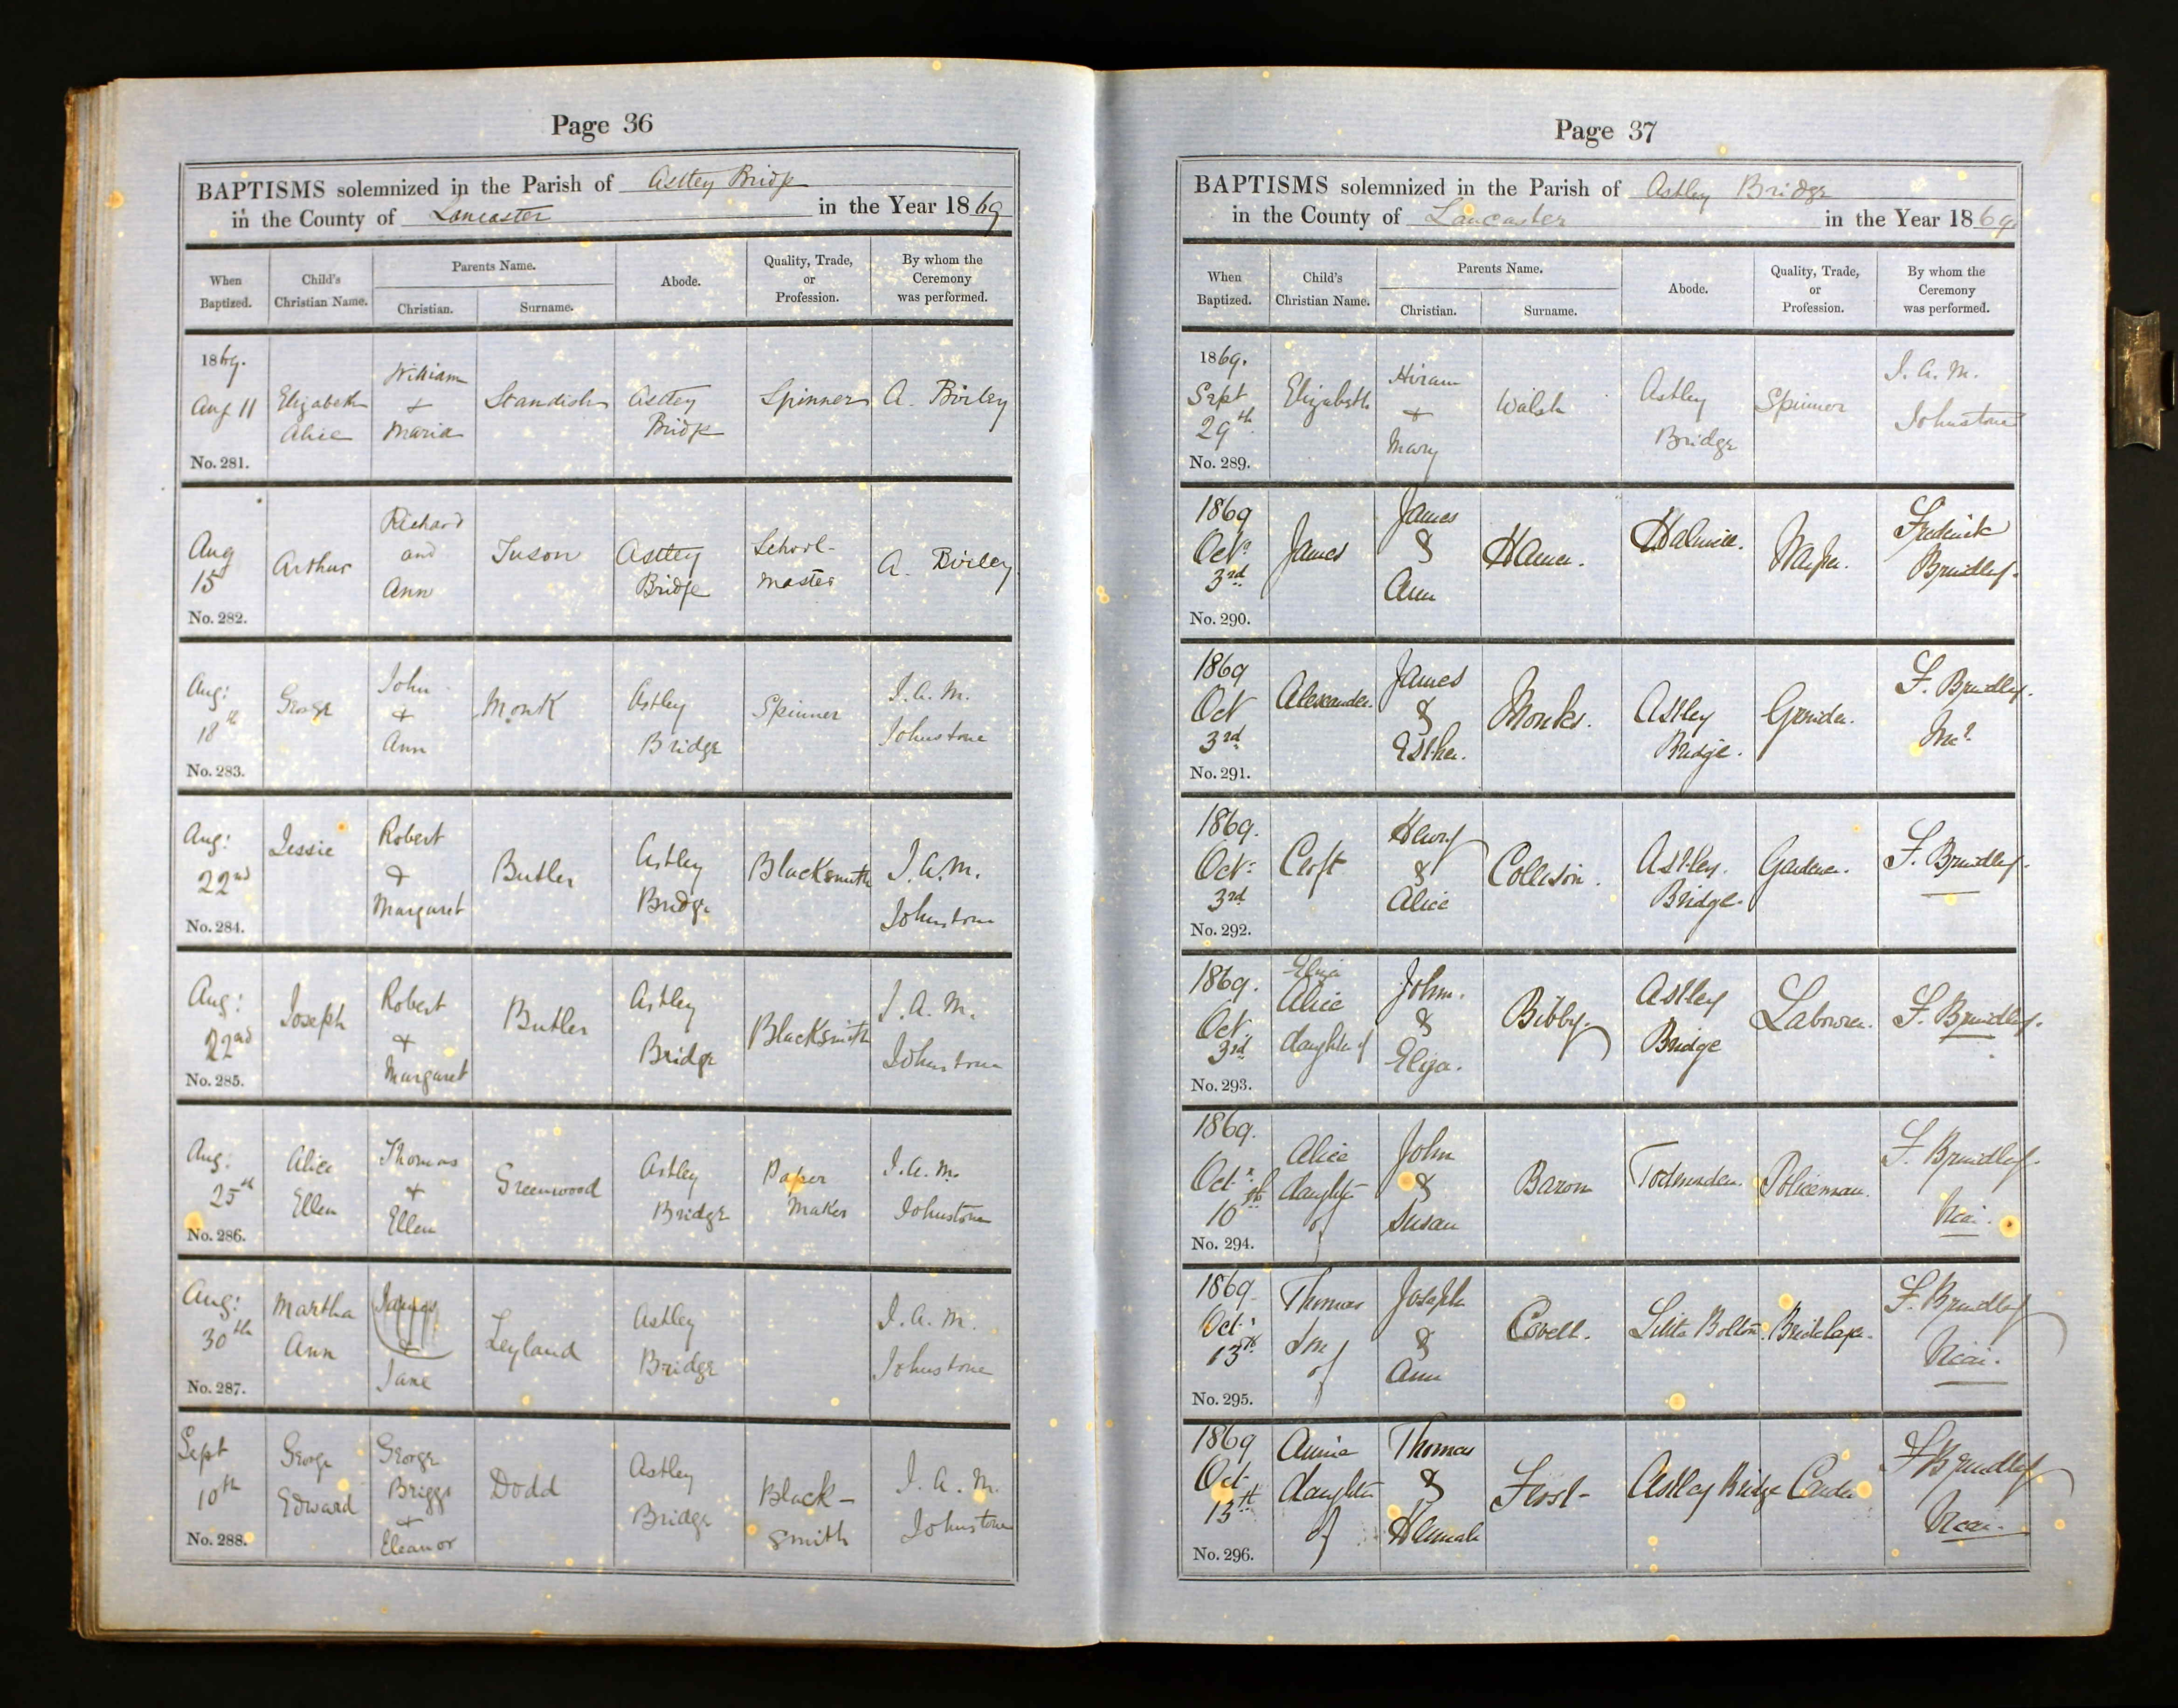 Page 36
BAPTISMS solemnized in the Parish of Astley Bridge
in the County of Lancaster in the Year 1869
When Baptized. Child's Christian Name. Parents Name. Christian. Surname. Abode. Quality, Trade, or Profession. By whom the Ceremony was performed.
1869. Aug 11 Elizabeth Alice William + Maria Standish Astley Bridge Spinner A. Birley
No. 281.
Aug 15 Arthur Richard and Ann Tuson Astley Bridge School-master A. Birley
No. 282.
Aug: 18th George John + Ann Monk Astley Bridge Spinner I. A. M. Johnstone
No. 283.
Aug: 22nd Jessie Robert + Margaret Butler Astley Bridge Blacksmith I. A. M. Johnstone
No. 284.
Aug: 22nd Joseph Robert + Margaret Butler Astley Bridge Blacksmith I. A. M. Johnstone
No. 285.
Aug: 25th Alice Ellen Thomas + Ellen Greenwood Astley Bridge Paper Maker I. A. M. Johnstone
No. 286.
Aug: 30th Martha Ann + Jane Leyland Astley Bridge I. A. M. Johnstone
No. 287.
Sept 10th George Edward George Briggs + Eleanor Dodd Astley Bridge Black-smith I. A. M. Johnstone
No. 288.
Page 37
BAPTISMS solemnized in the Parish of Astley Bridge
in the County of Lancaster in the Year 1869
When Baptized. Child's Christian Name. Parents Name. Christian. Surname. Abode. Quality, Trade, or Profession. By whom the Ceremony was performed.
1869. Sept 29th Elizabeth Hiram + Mary Walsh Astley Bridge Spinner I. A. M. Johnstone
No. 289.
1869 Octr 3rd James James & Ann Hamer. Halliwell. Frederick Brindley.
No. 290.
1869 Oct 3rd Alexander. James & Esther. Monks. Astley Bridge. Grinder. F. Brindley.
No. 291.
1869. Oct: 3rd Croft Henry & Alice Collison. Astley. Bridge. Gardener. F. Brindley.
No. 292.
1869. Oct. 3rd Eliza Alice daughter of John. & Eliza. Bibby. Astley Bridge Labourer. F. Brindley.
No. 293.
1869. Octr 10th Alice daughter of John & Susan Baron Todmorden. Policeman. F. Brindley. Vicar.
No. 294.
1869. Oct: 13th Thomas Son of Joseph & Ann Covell. Little Bolton. Bricklayer. F. Brindley Vicar.
No. 295.
1869 Oct 13th Annie daughter of Thomas & Hannah Astley Bridge Carder F Brindley Vicar.
No. 296.